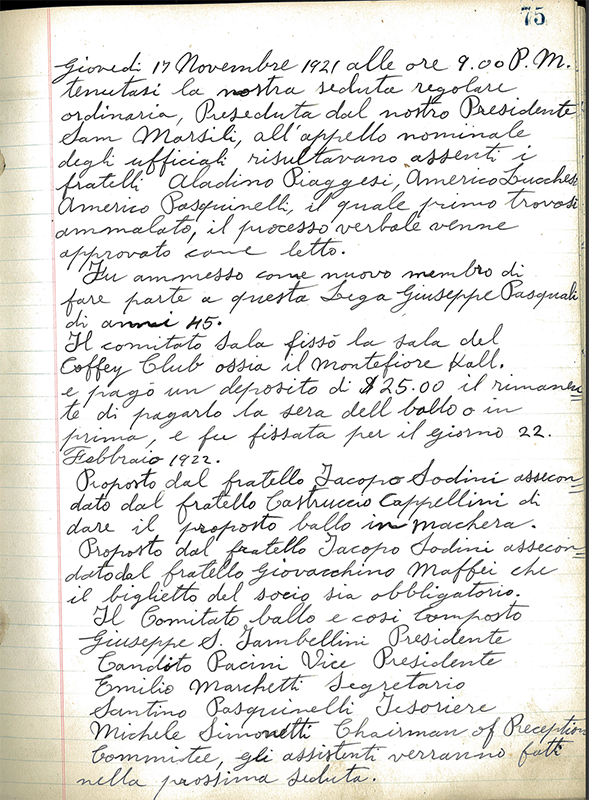 75
Giovedi 17 Novembre 1921 alle ore 9.00 P.M.
tenutasi la nostra seduta regolare
ordinaria, Preseduta dal nostro Presidente
Sam Marsili, all'appello nominale
degli ufficiali risultavano assenti i
fratelli Aladino Piaggesi, Americo Lucchesi
Americo Pasquinelli, il quale primo trovasi
ammalato, il processo verbale venne
approvato come letto.
Fu ammesso come nuovo membro di
fare parte a questa Lega Giuseppe Pasquali
di anni 45.
Il comitato sala fissò la sala del
Coffey Club ossia il Montefiore Hall.
e pagò un deposito di $25.00 il rimanen=
te di pagarlo la sera dell ballo o in
prima, e fu fissata per il giorno 22.
Febbraio 1922.
Proposto dal fratello Jacopo Sodini assecon=
dato dal fratello Castruccio Cappellini di
dare il proposto ballo in machera.
Proposto dal fratello Jacopo Sodini assecon=
dato dal fratello Giovacchino Maffei che
il biglietto del socio sia obbligatorio.
Il Comitato ballo e cosi composto
Giuseppe S. Tambellini Presidente
Candito Pacini Vice Presidente
Emilio Marchetti Segretario
Santino Pasquinelli Tesoriere
Michele Simonetti Chairman of Reception
Commistee, gli assistenti verranno fatti
nella prossima seduta.